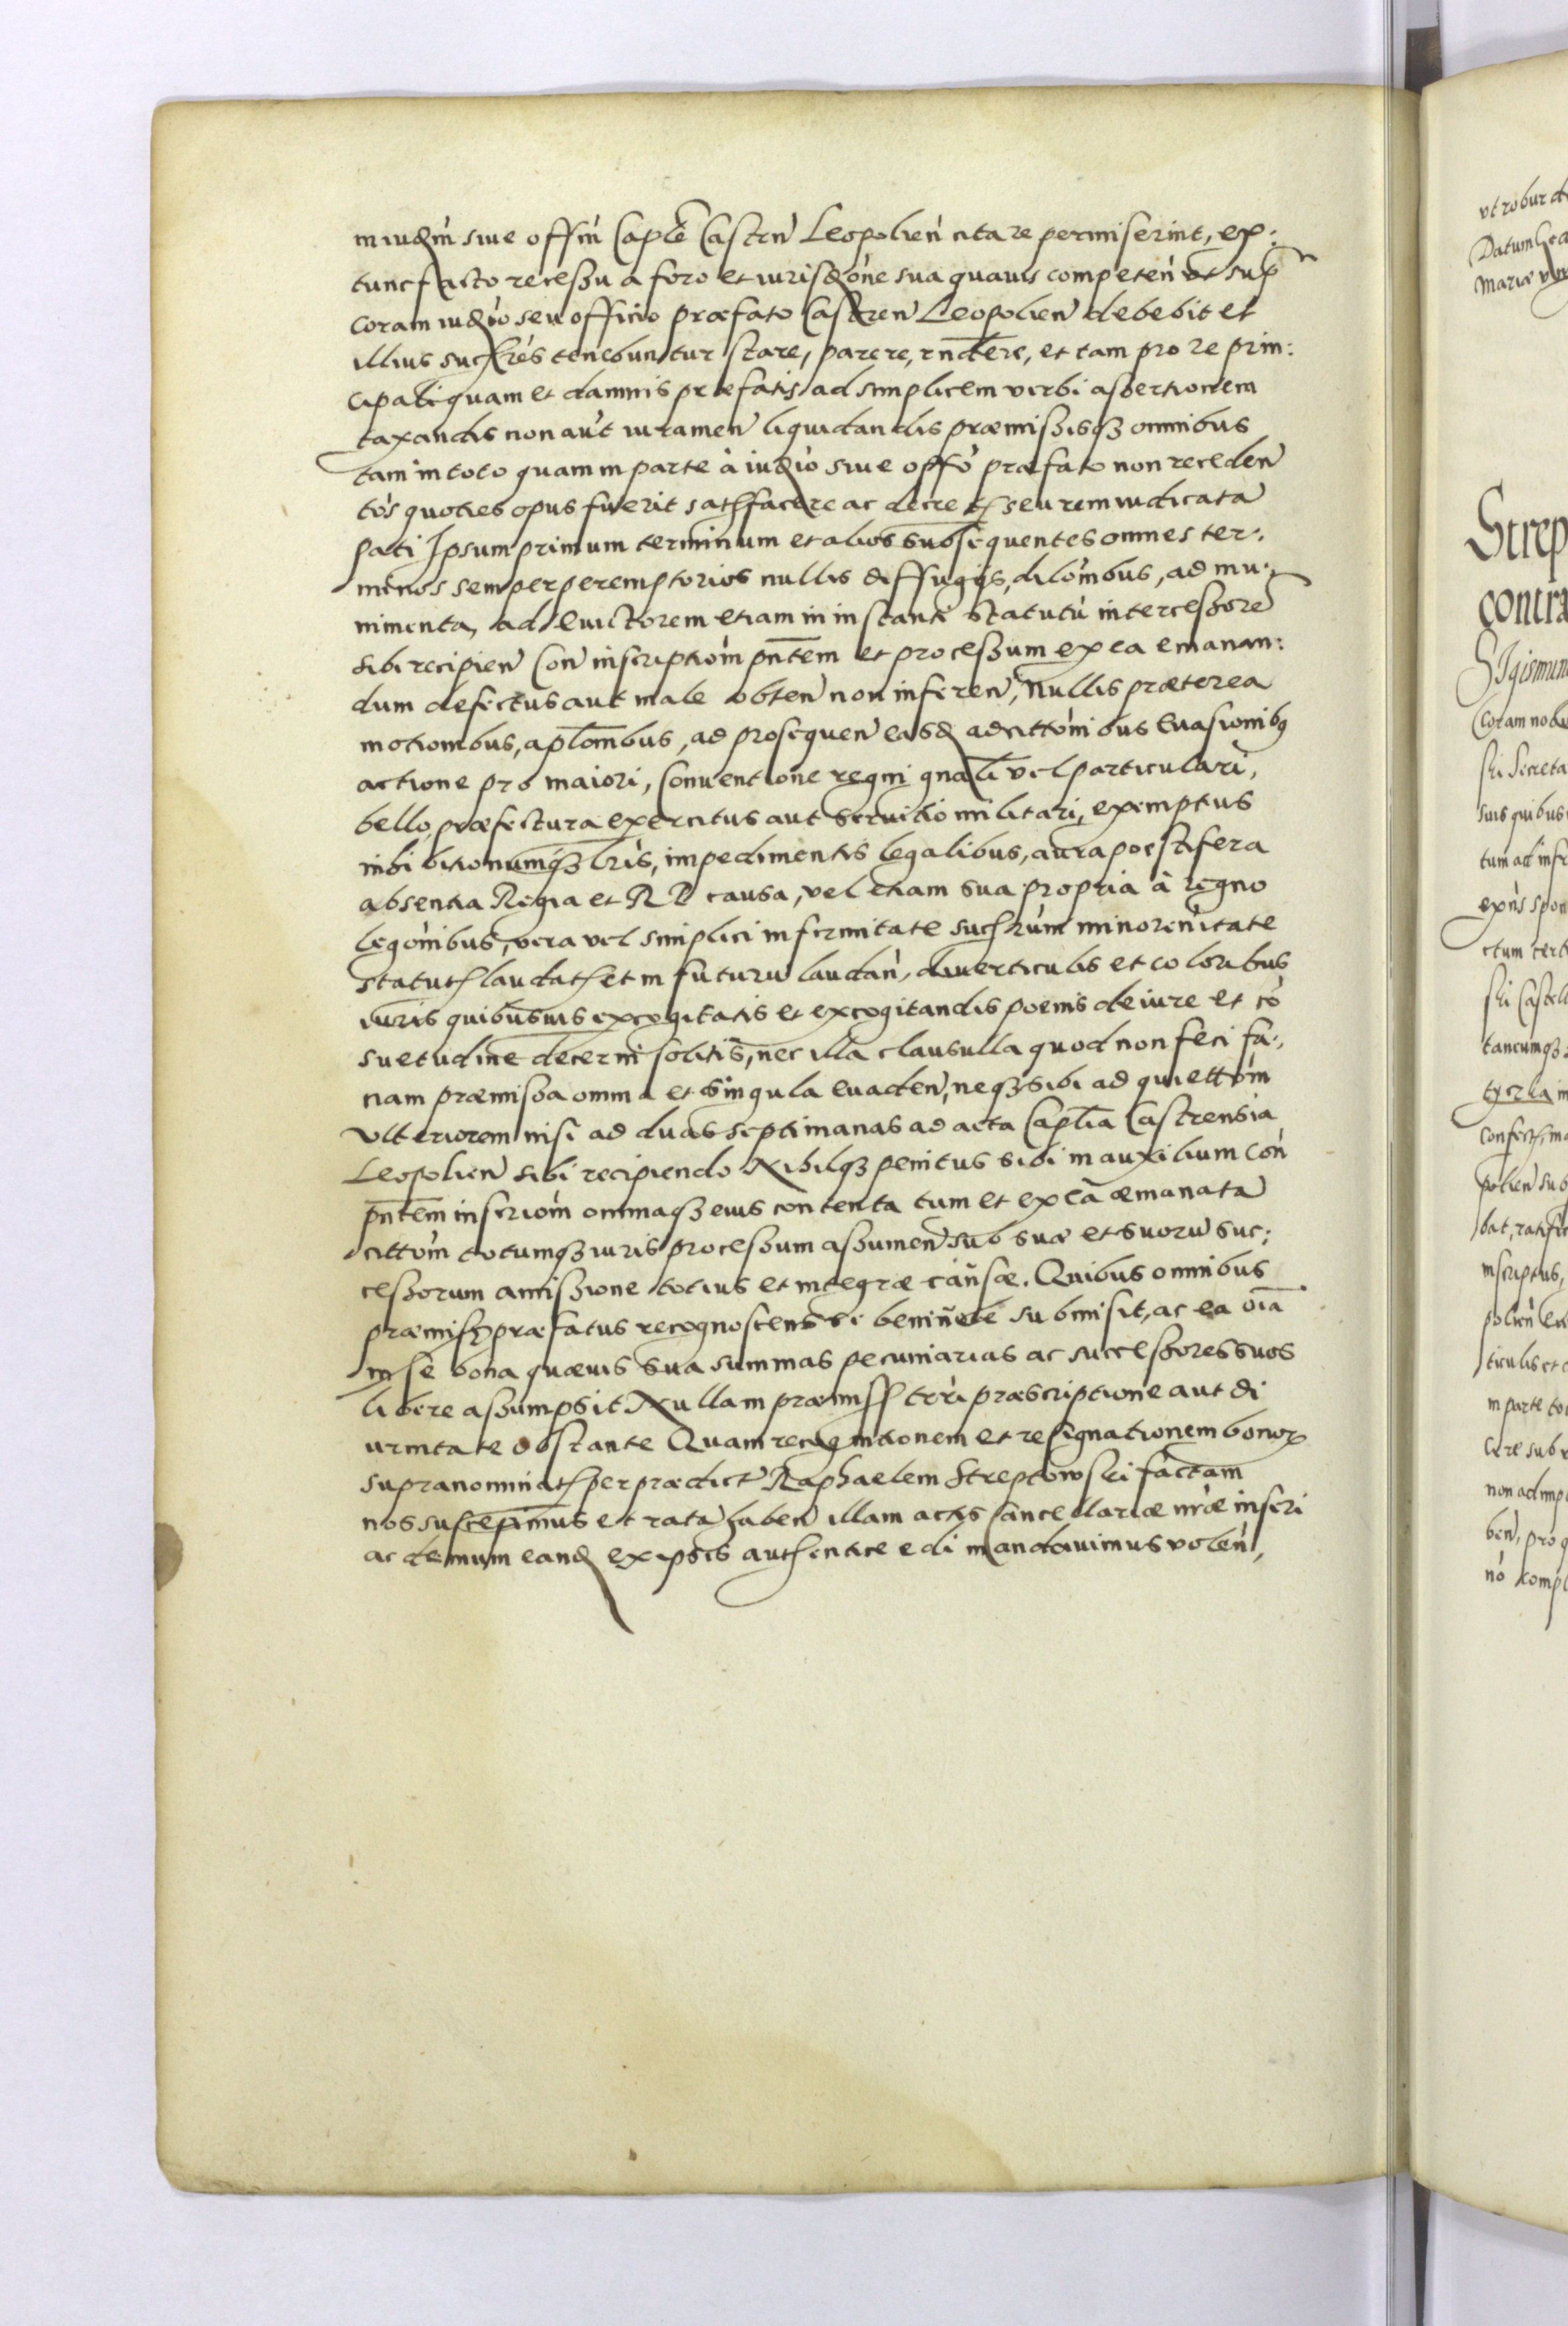 in iudm̀ siue offm̀ Caplē Castren̄ Leopolien̄ citare permiserint, ex:
tunc facto recessu a foro et iurisdòne sua quauis competen̄ ut sup̄
coram iudiò seu officio præfato Castren̄ Leopolien̄ debebit et
illius succrès tenebuntur stare, parere, rn̄dere, et tam pro re prin:
cipali quam et damnis præfatis ad simplicem verbi assertionem
taxandis non aūt iuramen̄ liquidandis præmissisq3 omnibus
tam in toto quam in parte à iudiò siue offò præfato non receden̄
tòs quoties opus fuerit satisfacere ac decret seu rem iudicatā
pati Ipsum primum terminum et alios subsequentes omnes ter:
minos semper peremptorios nullis diffugijs, dilòmbus, ad mu:
nimenta, ad Euictorem etiam in instanti statutū intercessorē
sibi recipien̄ Con̄ inscriptiòm pn̄tem et processum ex ea emanan:
dum defectus aut male obten̄ non inferen̄, Nullis præterea
motionibus, aplōmbus, ad prosequen̄ easd adcittòmibus Euasionib9
actione pro maiori, Conuentione regni gnali vel particulari,
bello, præfectura exercitus aut seruitio militari, exemptus
inhibitionumq3 lrìs, impedimentis legalibus, aura poestifera
absentia Regia et R P causa, vel etiam sua propria à regno
legònibus, vera vel simplici infirmitate succrùm minoren̄itate
statut laudat et in futurū laudan̄, diuerticulis et coloribus
iuris quibusuis excogitatis et excogitandis poenis de iure et cò
suetudine decerni solitis, nec illa clausulla quod non feci fa:
ciam præmissa omnia et singula euaden̄, neq3 sibi ad quiettòm
vlteriorem nisi ad duas septimanas ad acta Caplīa Castrensia
Leopolien̄ sibi recipiendo Nihilq3 penitus sibi in auxilium Con̄
pn̄tem inscriòm omniaq3 eius contenta tum et ex eā æmanata
cittòm totumq3 iuris processum assumen̄ sub suæ et suorū suc:
cessorum amissione totius et integræ causæ. Quibus omnibus
præmiss præfatus recognoscens se beniñole submisit, ac ea oīa
in se bona quæuis sua summas pecuniarias ac successores suos
libere assumpsit Nullam præmiss terrì præscriptione aut di
urnitate obstante Quam recognitionem et resignationem bonor
supranominat per prædict Raphaelem Streptowski factam
nos suscepimus et ratā haben̄ illam actis Cancellariæ nr̄æ inseri
ac demum eand ex ipsis authentice edi mandauimus volen̄,